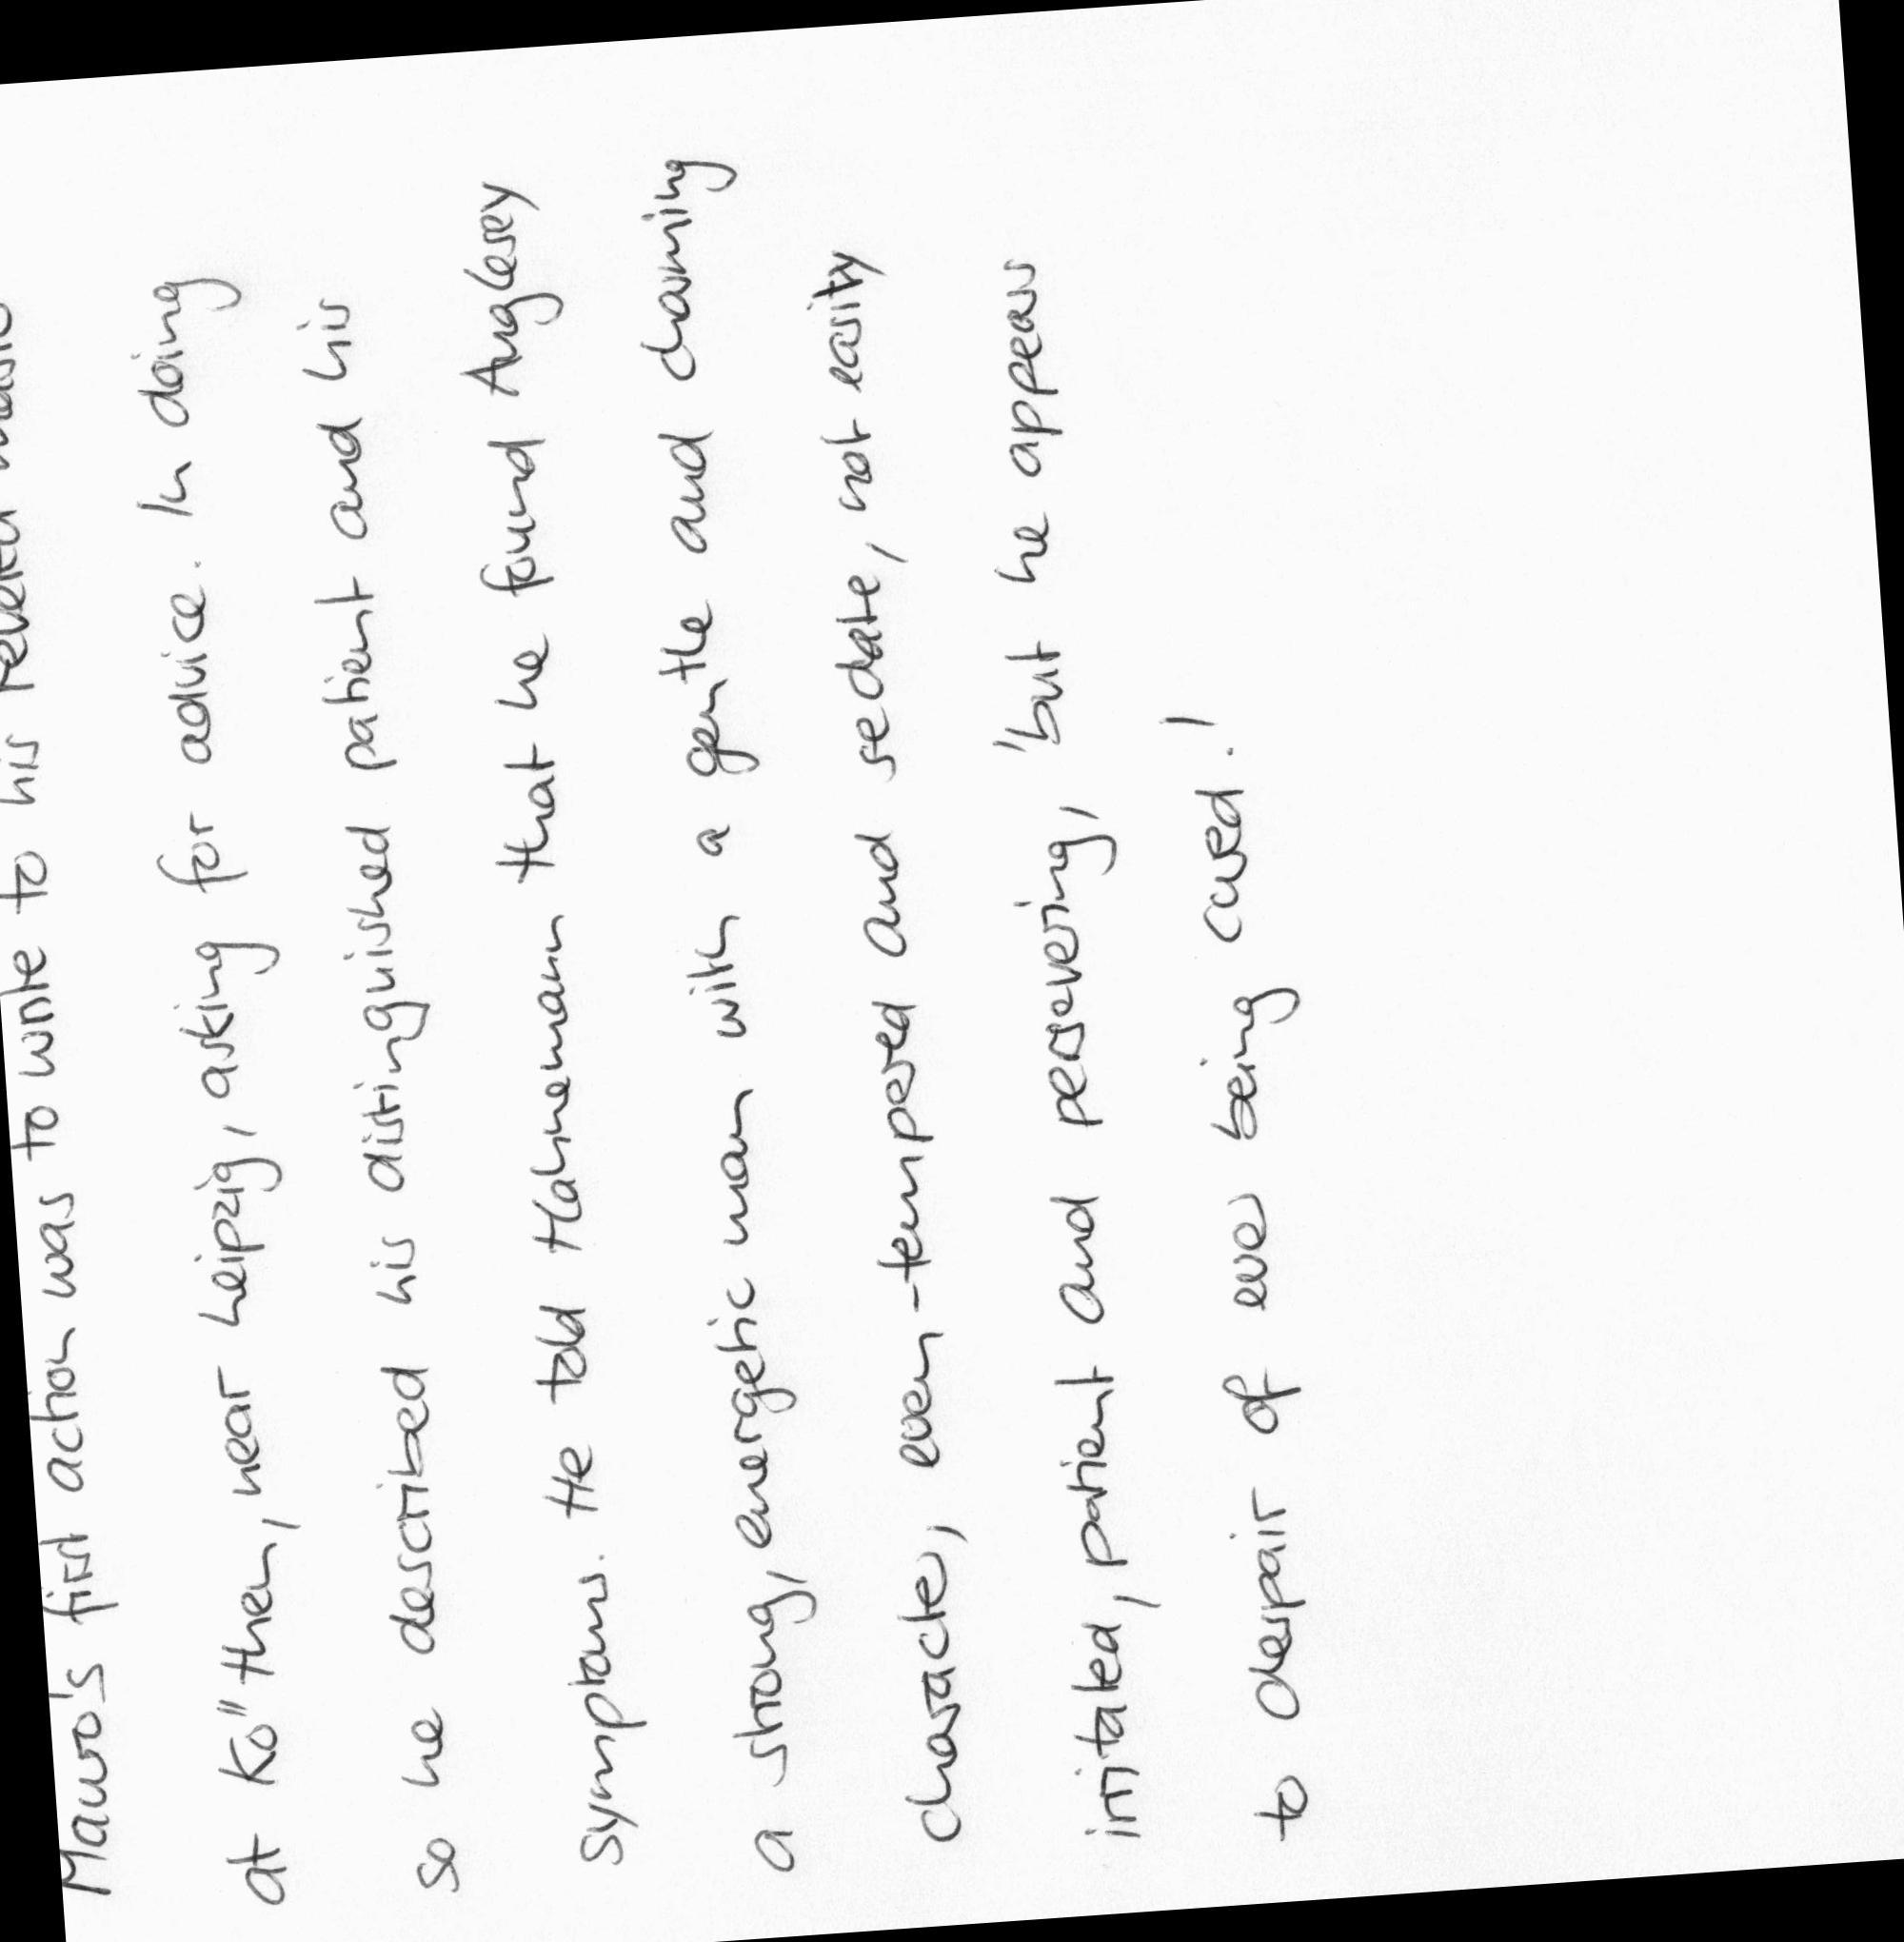 Mauro's first action was to write to his revered master
at Kö"then, near Leipzig, asking for advice. In doing
so he described his distinguished patient and his
symptoms. He told Hahnemann that he found Anglesey
a strong, energetic man with a gentle and charming
character, even-tempered and sedate, not easity
irritated, patient and persevering, 'but he appears
to despair of ever being cured.'